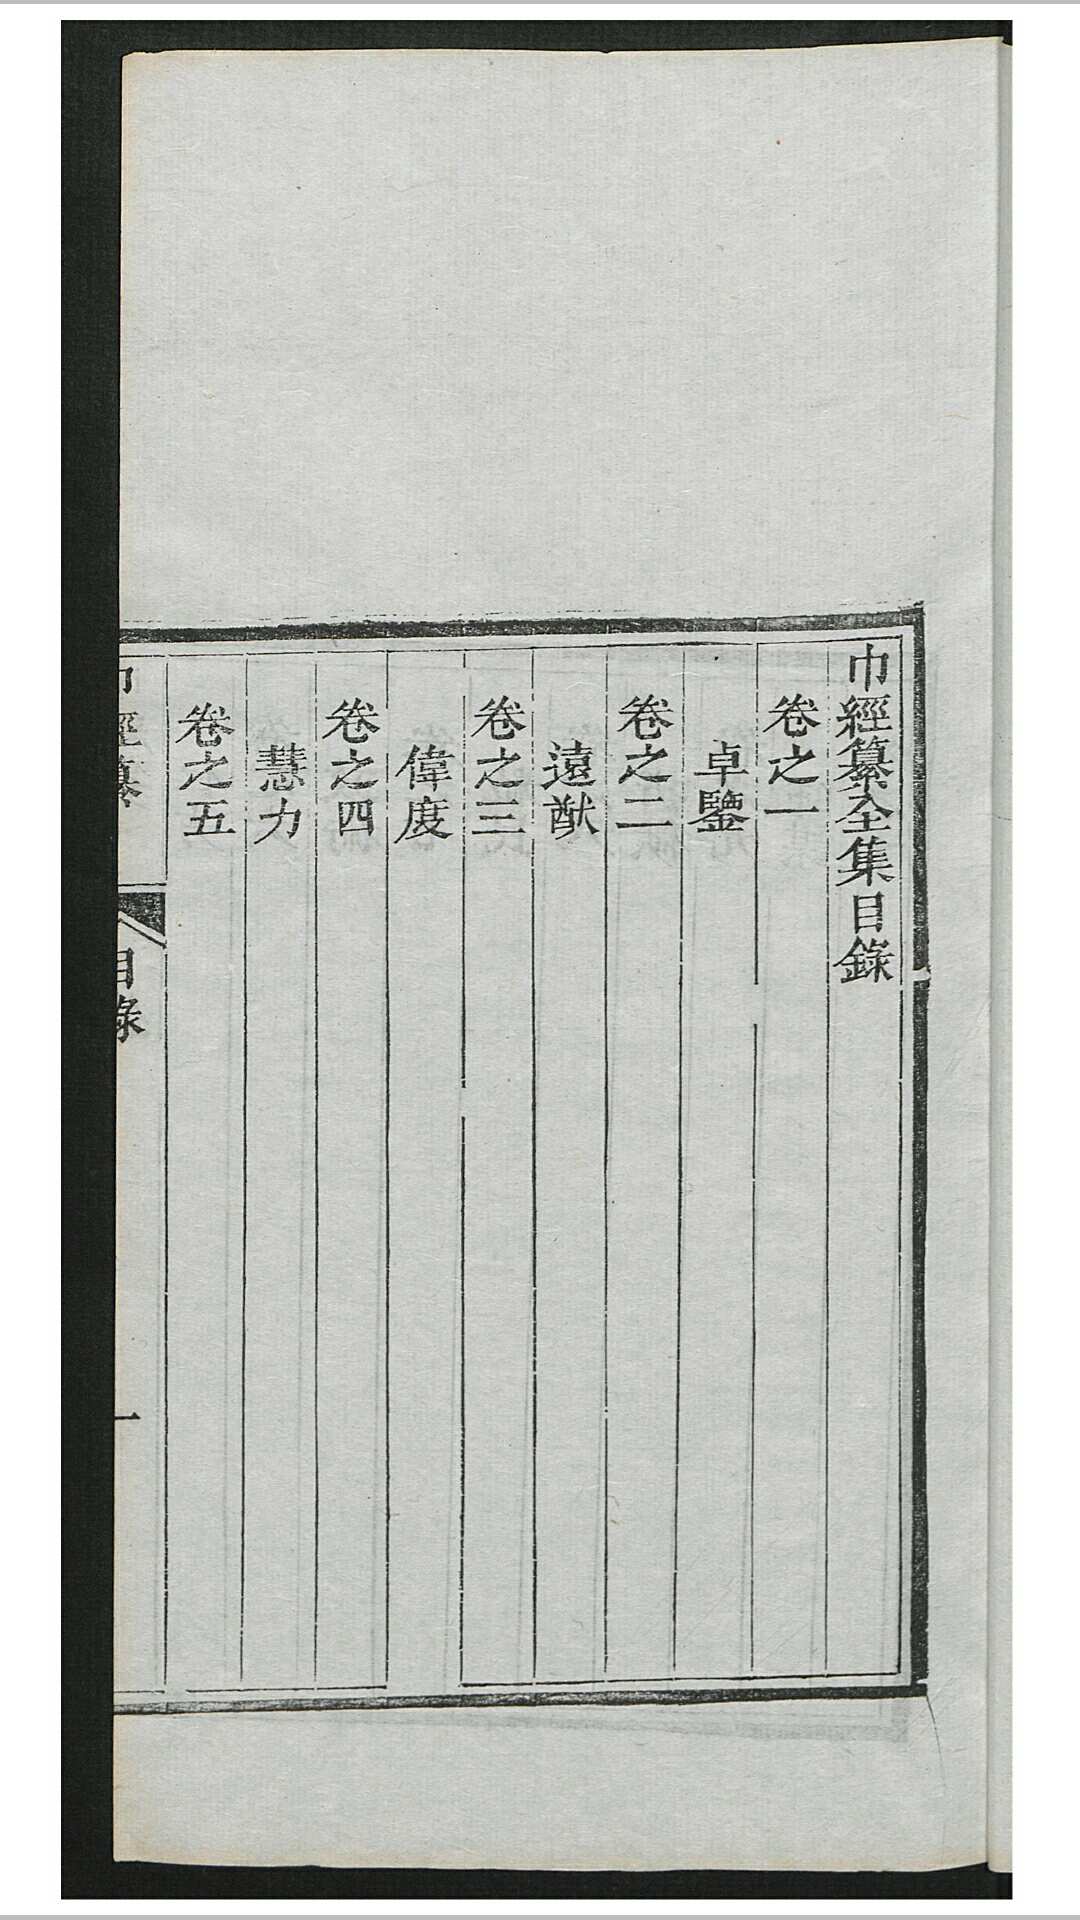 巾經纂全集目錄
卷之一
卓鑒
卷之二
遠猷
卷之三
偉度
卷之四
慧力
卷之五
巾經纂
目錄
一